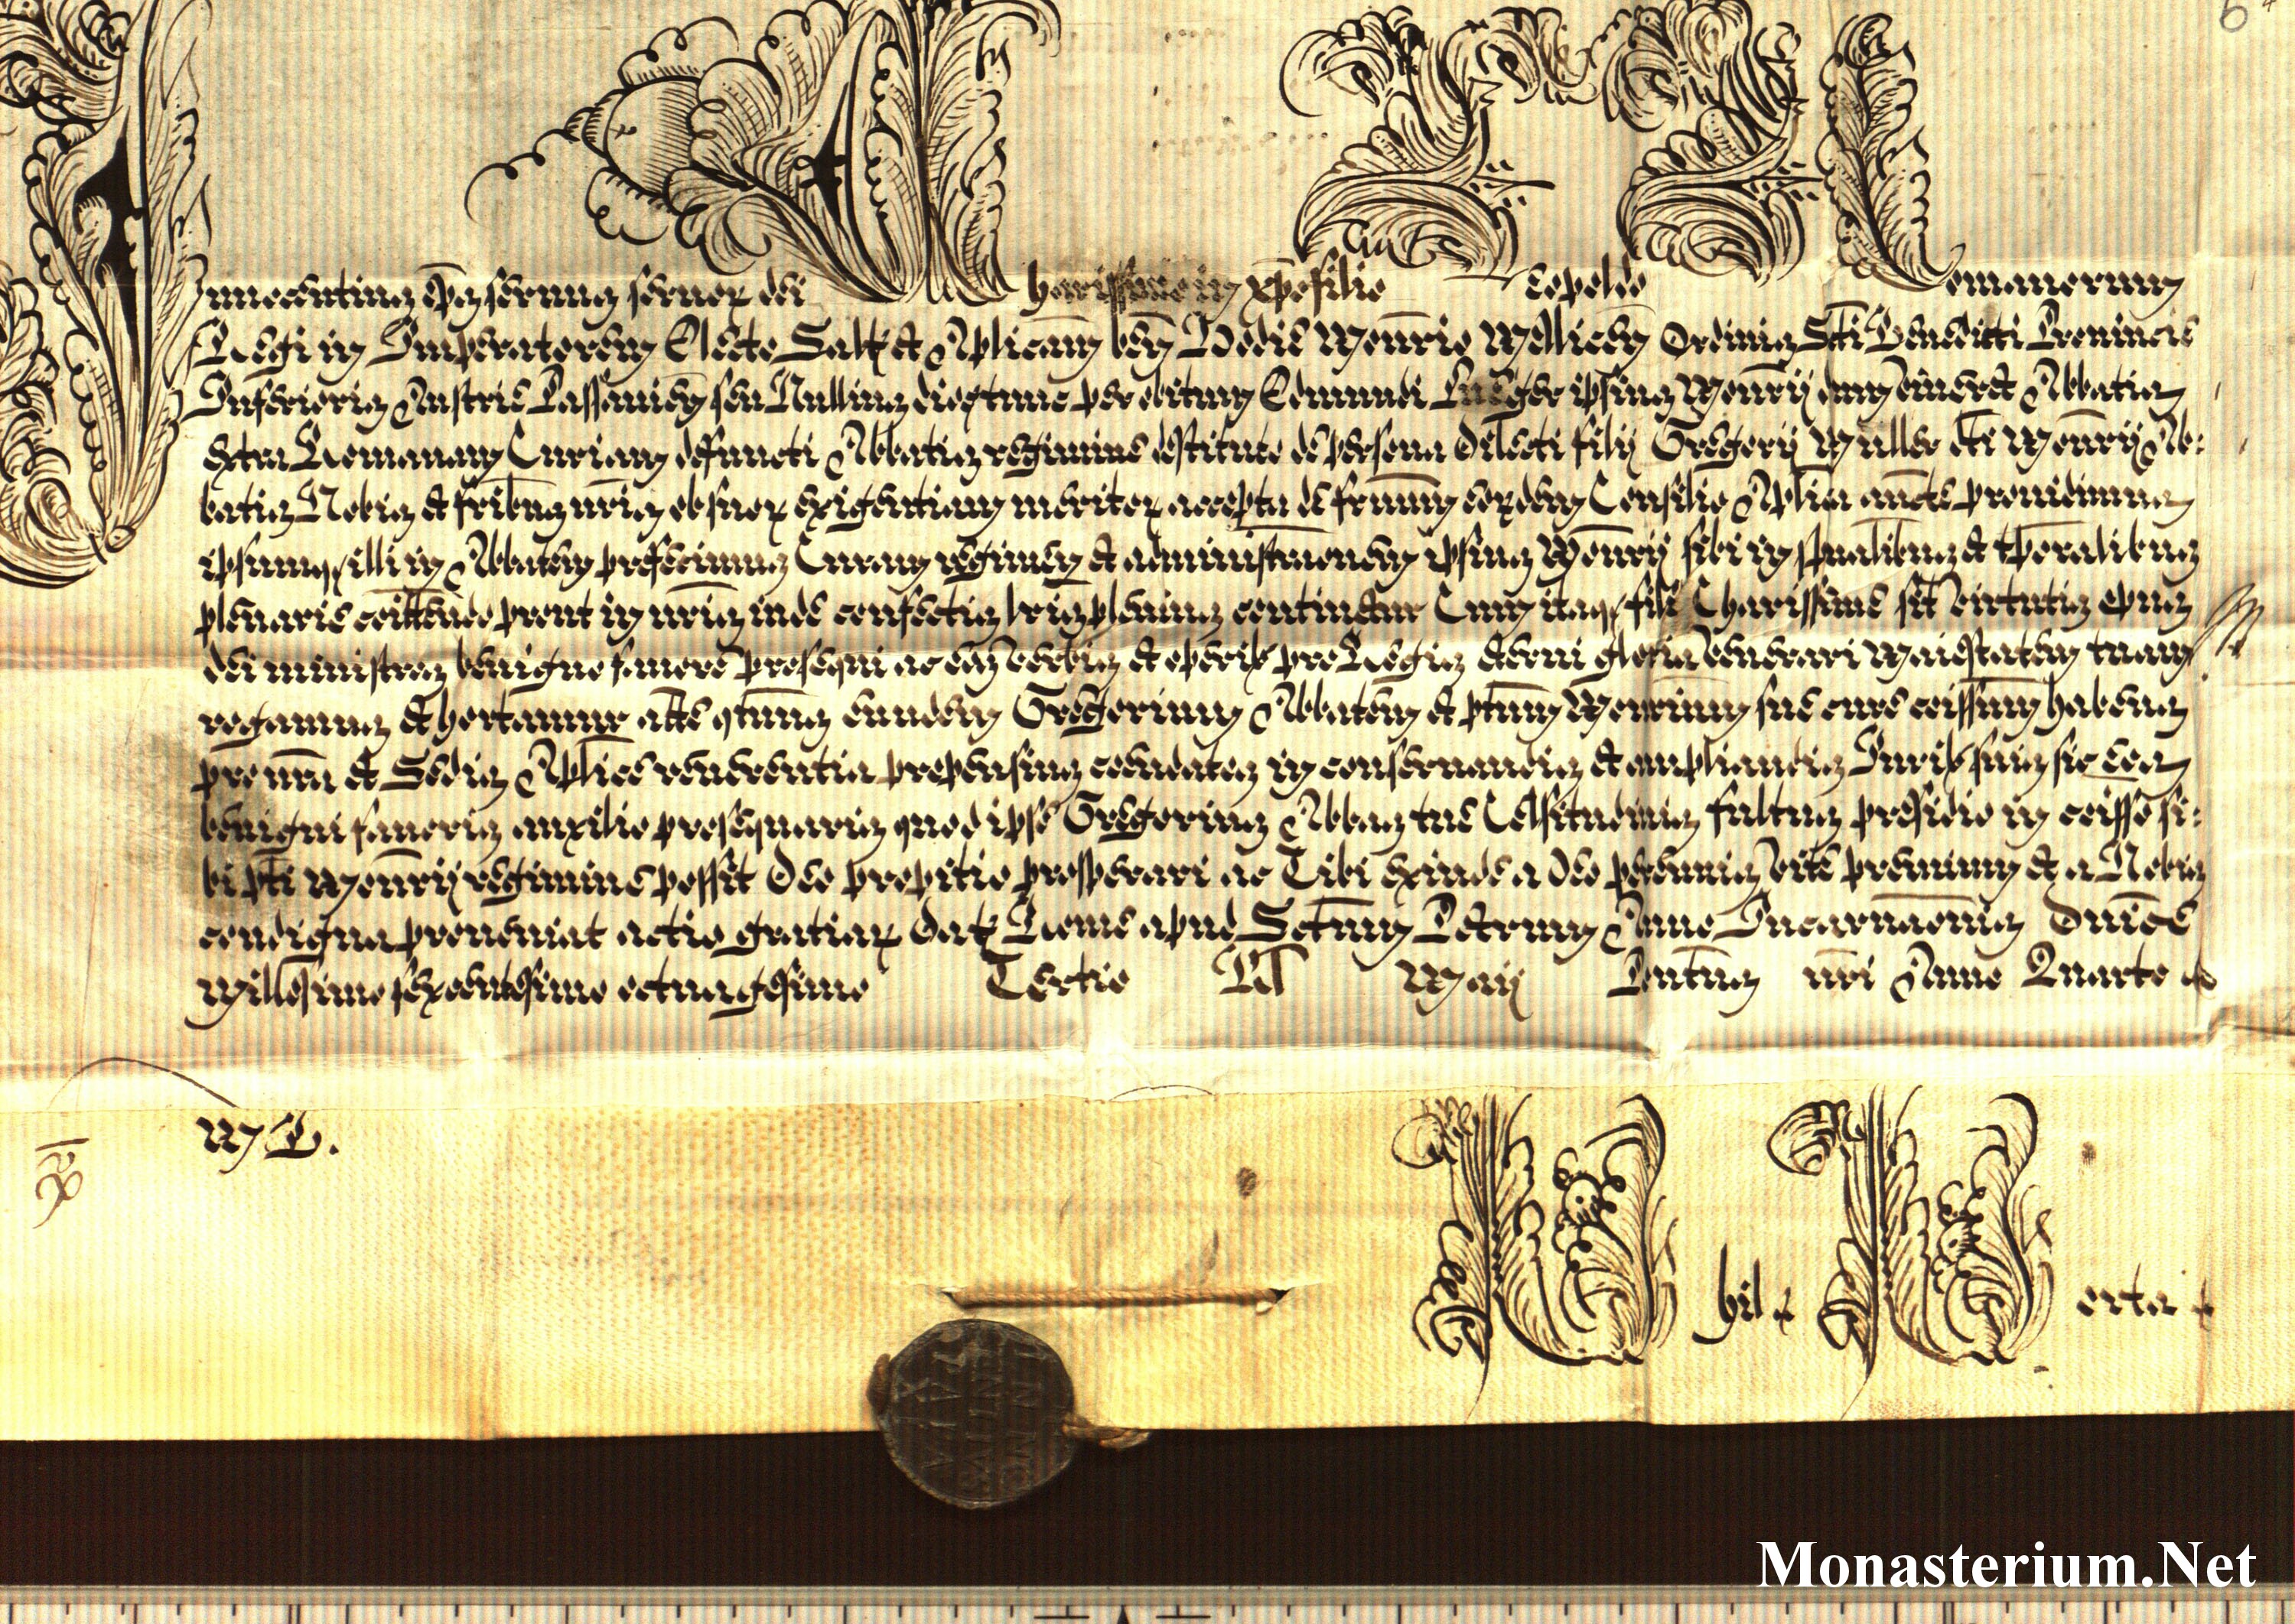 6
Innocentius Eps seruus seruoꝝ dei Charissimo in xp̄o filio Leopoldo Romanorum
Regi in Imperatorem Electo Saltem et Aplicam ben Hodie Monrio Mellicen Ordinis Sti Benedicti Prouincie
Inferioris Austrie Passauien seu Nullius dioc tunc per obitum Edmundi Lueger ipsius Monrij dum viueret Abbatis
extra Romanam Curiam defuncti Abbatis regimine destituto de persona dilecti filij Gregorij Muller dti Monrij Ab:
batis Nobis et fribus nris ob suoꝝ exigentiam meritoꝝ accepta de frum eoꝝdem Consilio Aplica aucte prouidimus
ipsumqꝫ illi in Abbatem prefecimus Curam regimen et administraonem ipsius Monrij sibi in spualibus et tporalibus
plenarie coittendo prout in nris inde confectis lris plenius continetur Cum itaqꝫ fili Charissime sit virtutis opus
dei ministros benigno fauore prosequi ac eos verbis et operibꝫ pro Regis eterni gloria venerari Maiestatem tuam
rogamus et hortamur atte qtenus eundem Gregorium Abbatem et ptum Monrium sue cure coissum habens
pro nra et Sedis Aplice reuerentia propensius coendatos in conseruandis et ampliandis Juribꝫ suis sic eos
benigni fauoris auxilio prosequaris quod ipse Gregorius Abbas tue Celsitudinis fultus presidio in coisso si:
bi pti Monrij regimine possit Deo propitio prosperari ac Tibi exinde a Deo perennis vite premium et a Nobis
condigna proueniat actio gratiaꝝ Dat Rome apud Sctum Petrum Anno Incarnaonis Dnice
Millesimo sexcentesimo octuagesimo Tertio Kl Maij Pontus nri Anno Quarto
M B.
Monasterium.Net